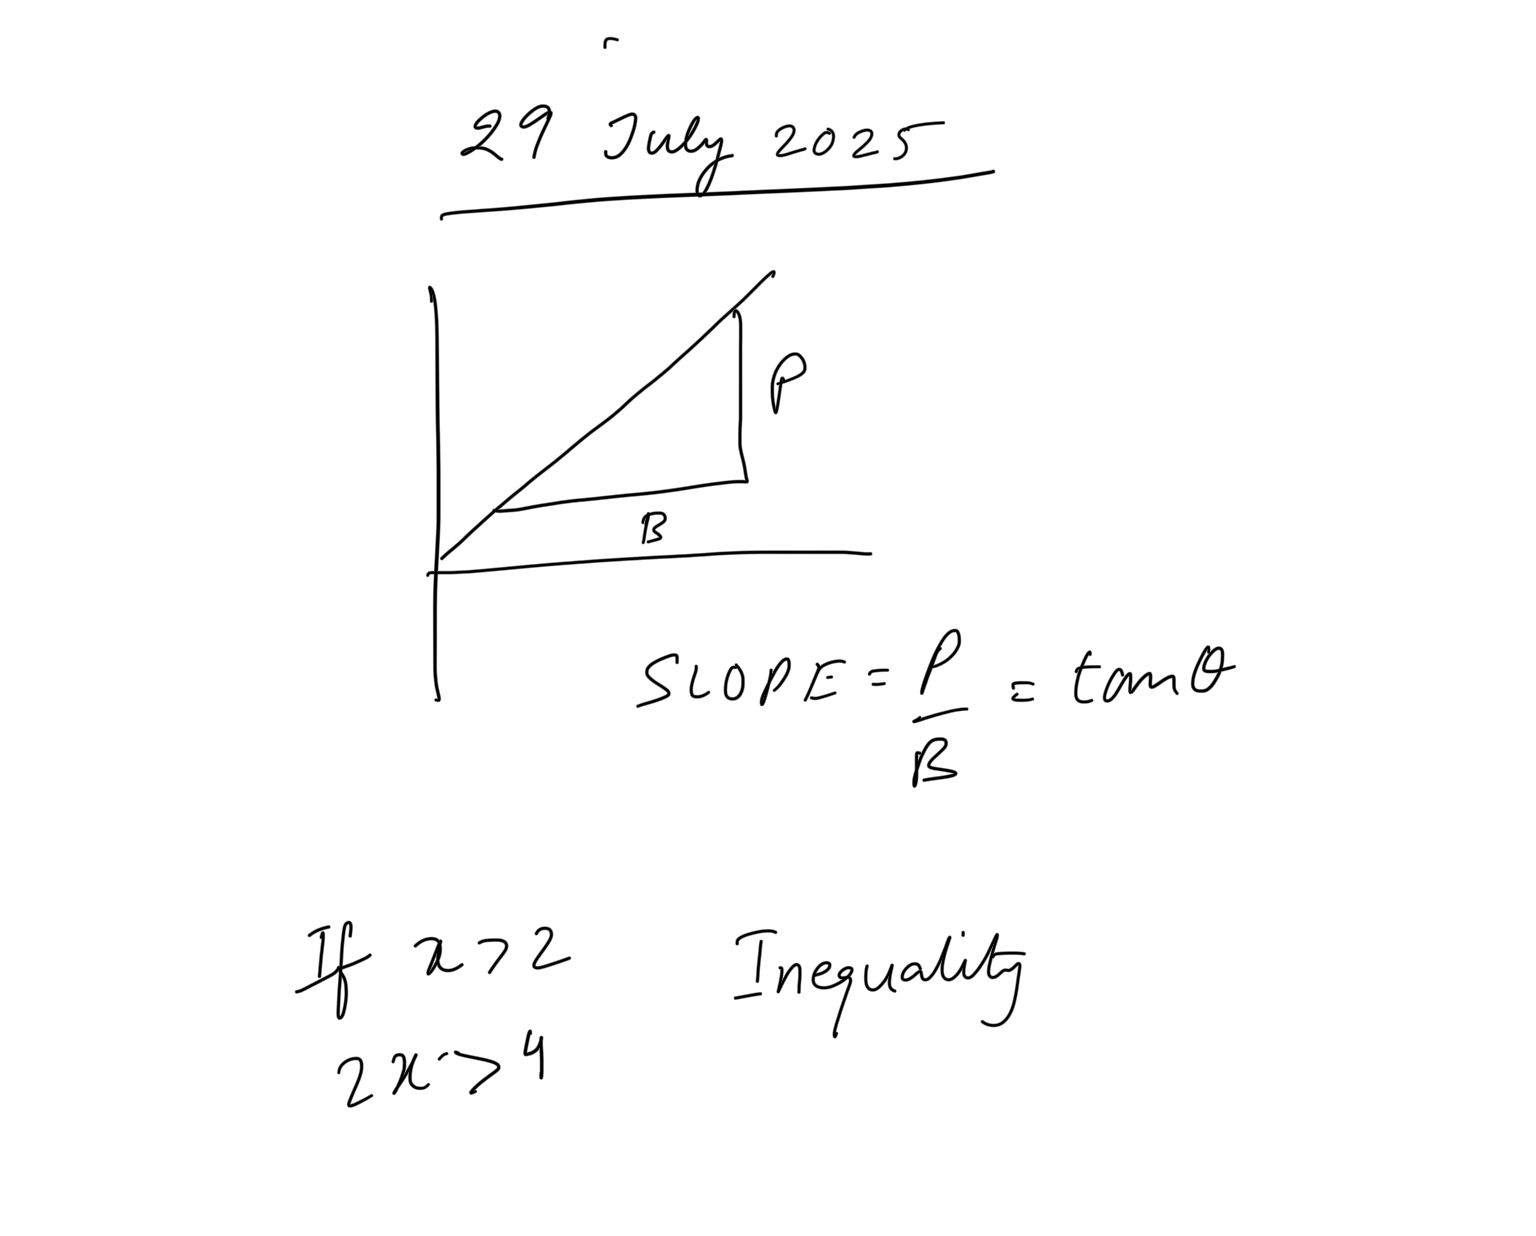 29 July 2025
P
B
SLOPE = P/B = tanθ
If x>2 Inequality
2x>4